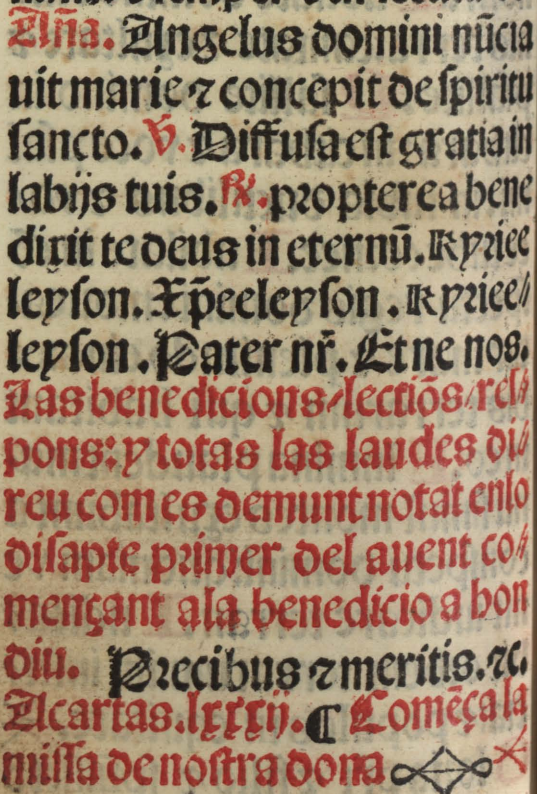 Aña. Angelus domini nūcia
uit marie ⁊ concepit de ſpiritu
ſancto. ℣. Diffuſa eſt gratia in
labijs tuis. ℟. propterea bene
dixit te deus in eternū. Kyriee
leyſon. Xp̄eeleyſon. Kyriee⸗
leyſon. Pater nr̄. Et ne nos.
Las benedicions/lectiōs/reſ⸗
pons: y totas las laudes di⸗
reu com es demunt notat en lo
diſapte primer del auent co⸗
mençant ala benedicio a bon
diu. Precibus ⁊ meritis. ⁊c.
A cartas. lxxxij. ¶ Comēça la
miſſa de noſtra dona